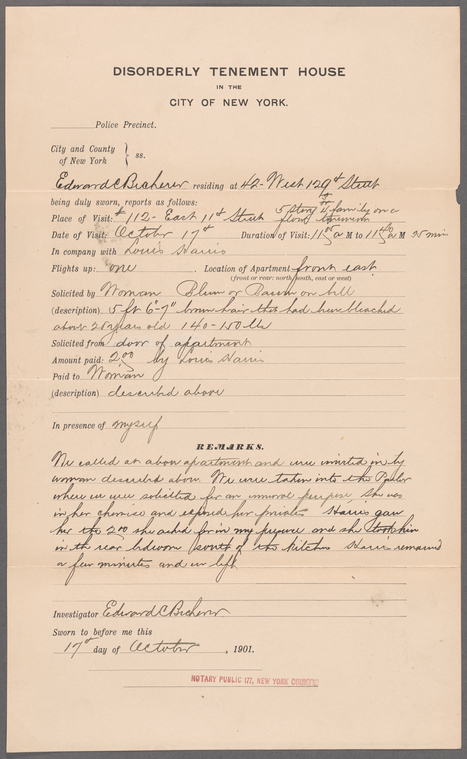 DISORDERLY TENEMENT HOUSE
IN THE
CITY OF NEW YORK.
Police Precinct.
City and County
of New York } ss.
Edward C Becherer residing at 42- West 129th Street
being duly sworn, reports as follows:
Place of Visit: # 112- East 11th Street 5 story 4 family on a floor tenement
Date of Visit: October 17th Duration of Visit: 11 05 a M to 11 40 a M 35 min
In company with Louis Harris
Flights up: one Location of Apartment front east
(front or rear: north, south, east or west)
Solicited by Woman Blum or Baum on bell
(description) 5 ft 6-7" brown hair that had been bleached
about 28 years old 140-150 lbs
Solicited from door of apartment
Amount paid: 2 00 by Louis Harris
Paid to Woman
(description) described above
In presence of myself
REMARKS.
We called at above apartment and were invited in by
woman described above. We were taken into the Parlor
where we were solicited for an immoral purpose, she was
in her chemise and exposed her privates Harris gave
her the 2 00 she asked for in my presence and she took him
in the rear bedroom south of the kitchen Harris remained
a few minutes and we left
Investigator Edward C Becherer
Sworn to before me this
17th day of October , 1901.
NOTARY PUBLIC 177, NEW YORK COUNTY